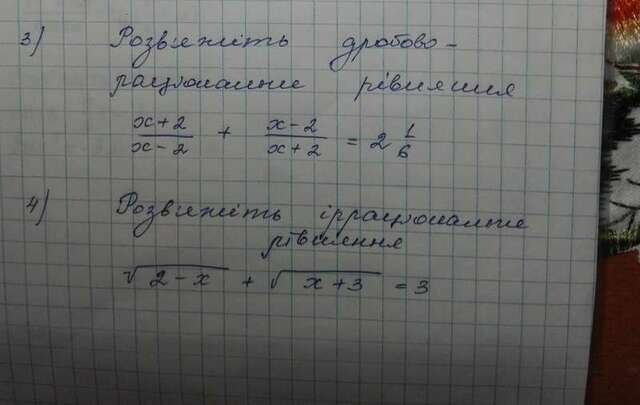 3) Розв'яжіть дробово-
раціональне рівняння
x+2/x-2 + x-2/x+2 = 2 1/6
4) Розв'яжіть ірраціональне
рівняння
√2-x + √x+3 = 3